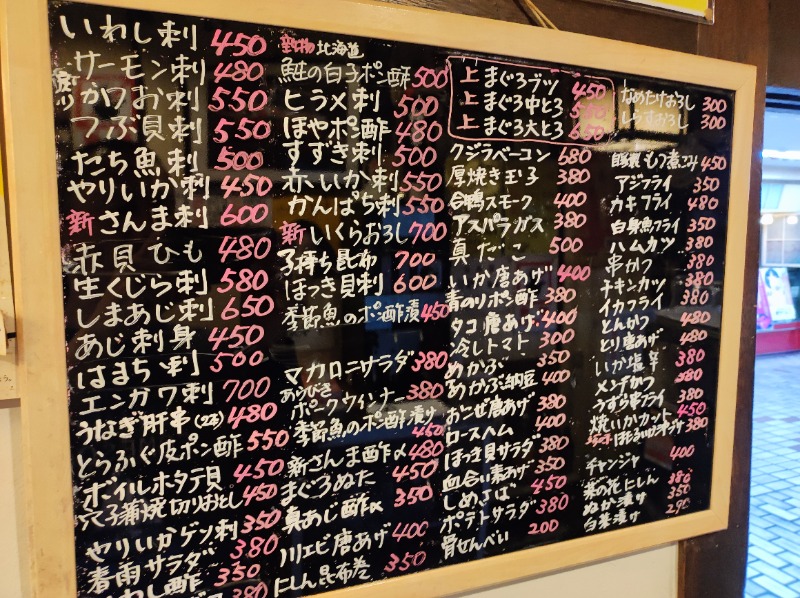 いわし刺 450
サーモン刺 480
かつお刺 550
つぶ貝刺 550
たち魚刺 500
やりいか刺 450
新さんま刺 600
赤貝ひも 480
生くじら刺 580
しまあじ刺 650
あじ刺身 450
はまち刺 500
エンガワ刺 700
うなぎ肝串(2本) 480
とらふぐ皮ポン酢 550
ボイルホタテ貝 450
穴子蒲焼切りおとし 450
やりいかゲソ刺 350
春雨サラダ 380
いわし酢 350
380
新物 北海道
鮭の白子ポン酢 500
ヒラメ刺 500
ほやポン酢 480
すずき刺 500
赤いか刺 550
かんぱち刺 550
新いくらおろし 700
子持ち昆布 700
ほっき貝刺 600
季節魚のポン酢漬 450
マカロニサラダ 380
あらびき
ポークウィンナー 380
季節魚のポン酢漬け 450
新さんま酢〆 480
まぐろぬた 450
真あじ酢〆 350
川エビ唐あげ 400
にしん昆布巻 350
上まぐろブツ 450
上まぐろ中とろ 580
上まぐろ大とろ 650
クジラベーコン 680
厚焼き玉子 380
合鴨スモーク 400
アスパラガス 380
真だこ 500
いか唐あげ 400
青のりポン酢 380
タコ唐あげ 400
冷しトマト 300
めかぶ 350
めかぶ納豆 400
おこぜ唐あげ 380
ロースハム 400
ほっき貝サラダ 380
血合い素あげ 350
しめさば 450
ポテトサラダ 380
骨せんべい 200
なめたけおろし 300
しらすおろし 300
自家製もつ煮こみ 450
アジフライ 350
カキフライ 480
白身魚フライ 350
ハムカツ 380
串かつ 380
チキンカツ 380
イカフライ 380
とんかつ 480
とり唐あげ 480
いか塩辛 380
メンチかつ 380
うずら串フライ
焼いかカット 450
380
チャンジャ 400
菜の花にしん 380
ぬか漬け 350
白菜漬け 290